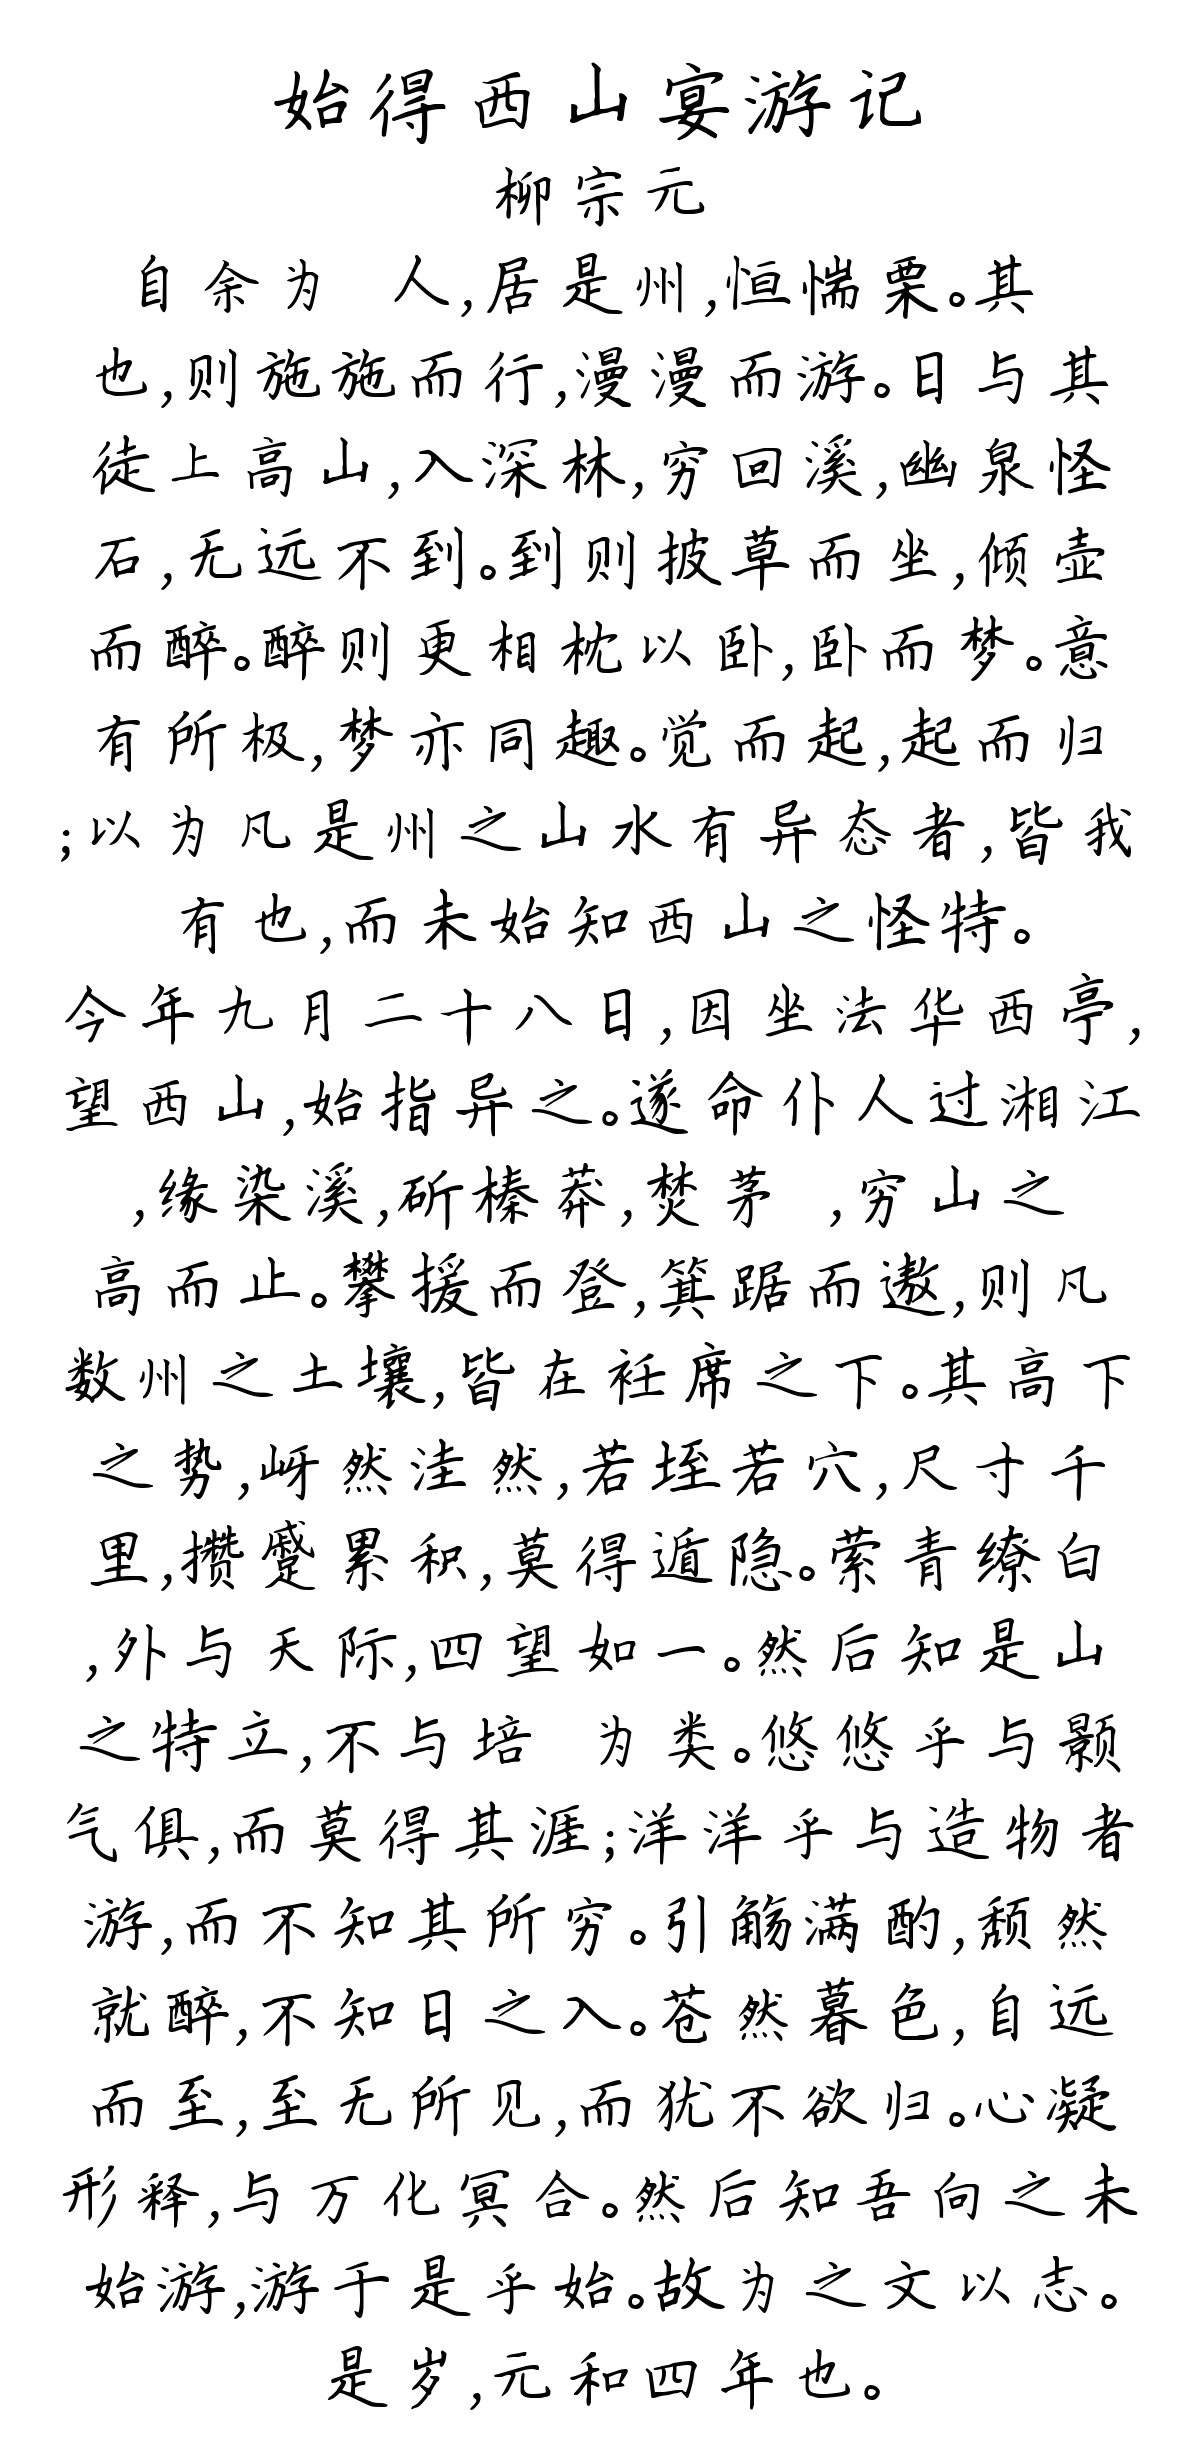 始得西山宴游记
柳宗元
自余为 人,居是州,恒惴栗。其
也,则施施而行,漫漫而游。日与其
徒上高山,入深林,穷回溪,幽泉怪
石,无远不到。到则披草而坐,倾壶
而醉。醉则更相枕以卧,卧而梦。意
有所极,梦亦同趣。觉而起,起而归
;以为凡是州之山水有异态者,皆我
有也,而未始知西山之怪特。
今年九月二十八日,因坐法华西亭,
望西山,始指异之。遂命仆人过湘江
,缘染溪,斫榛莽,焚茅 ,穷山之
高而止。攀援而登,箕踞而遨,则凡
数州之土壤,皆在衽席之下。其高下
之势,岈然洼然,若垤若穴,尺寸千
里,攒蹙累积,莫得遁隐。萦青缭白
,外与天际,四望如一。然后知是山
之特立,不与培 为类。悠悠乎与颢
气俱,而莫得其涯;洋洋乎与造物者
游,而不知其所穷。引觞满酌,颓然
就醉,不知日之入。苍然暮色,自远
而至,至无所见,而犹不欲归。心凝
形释,与万化冥合。然后知吾向之未
始游,游于是乎始。故为之文以志。
是岁,元和四年也。